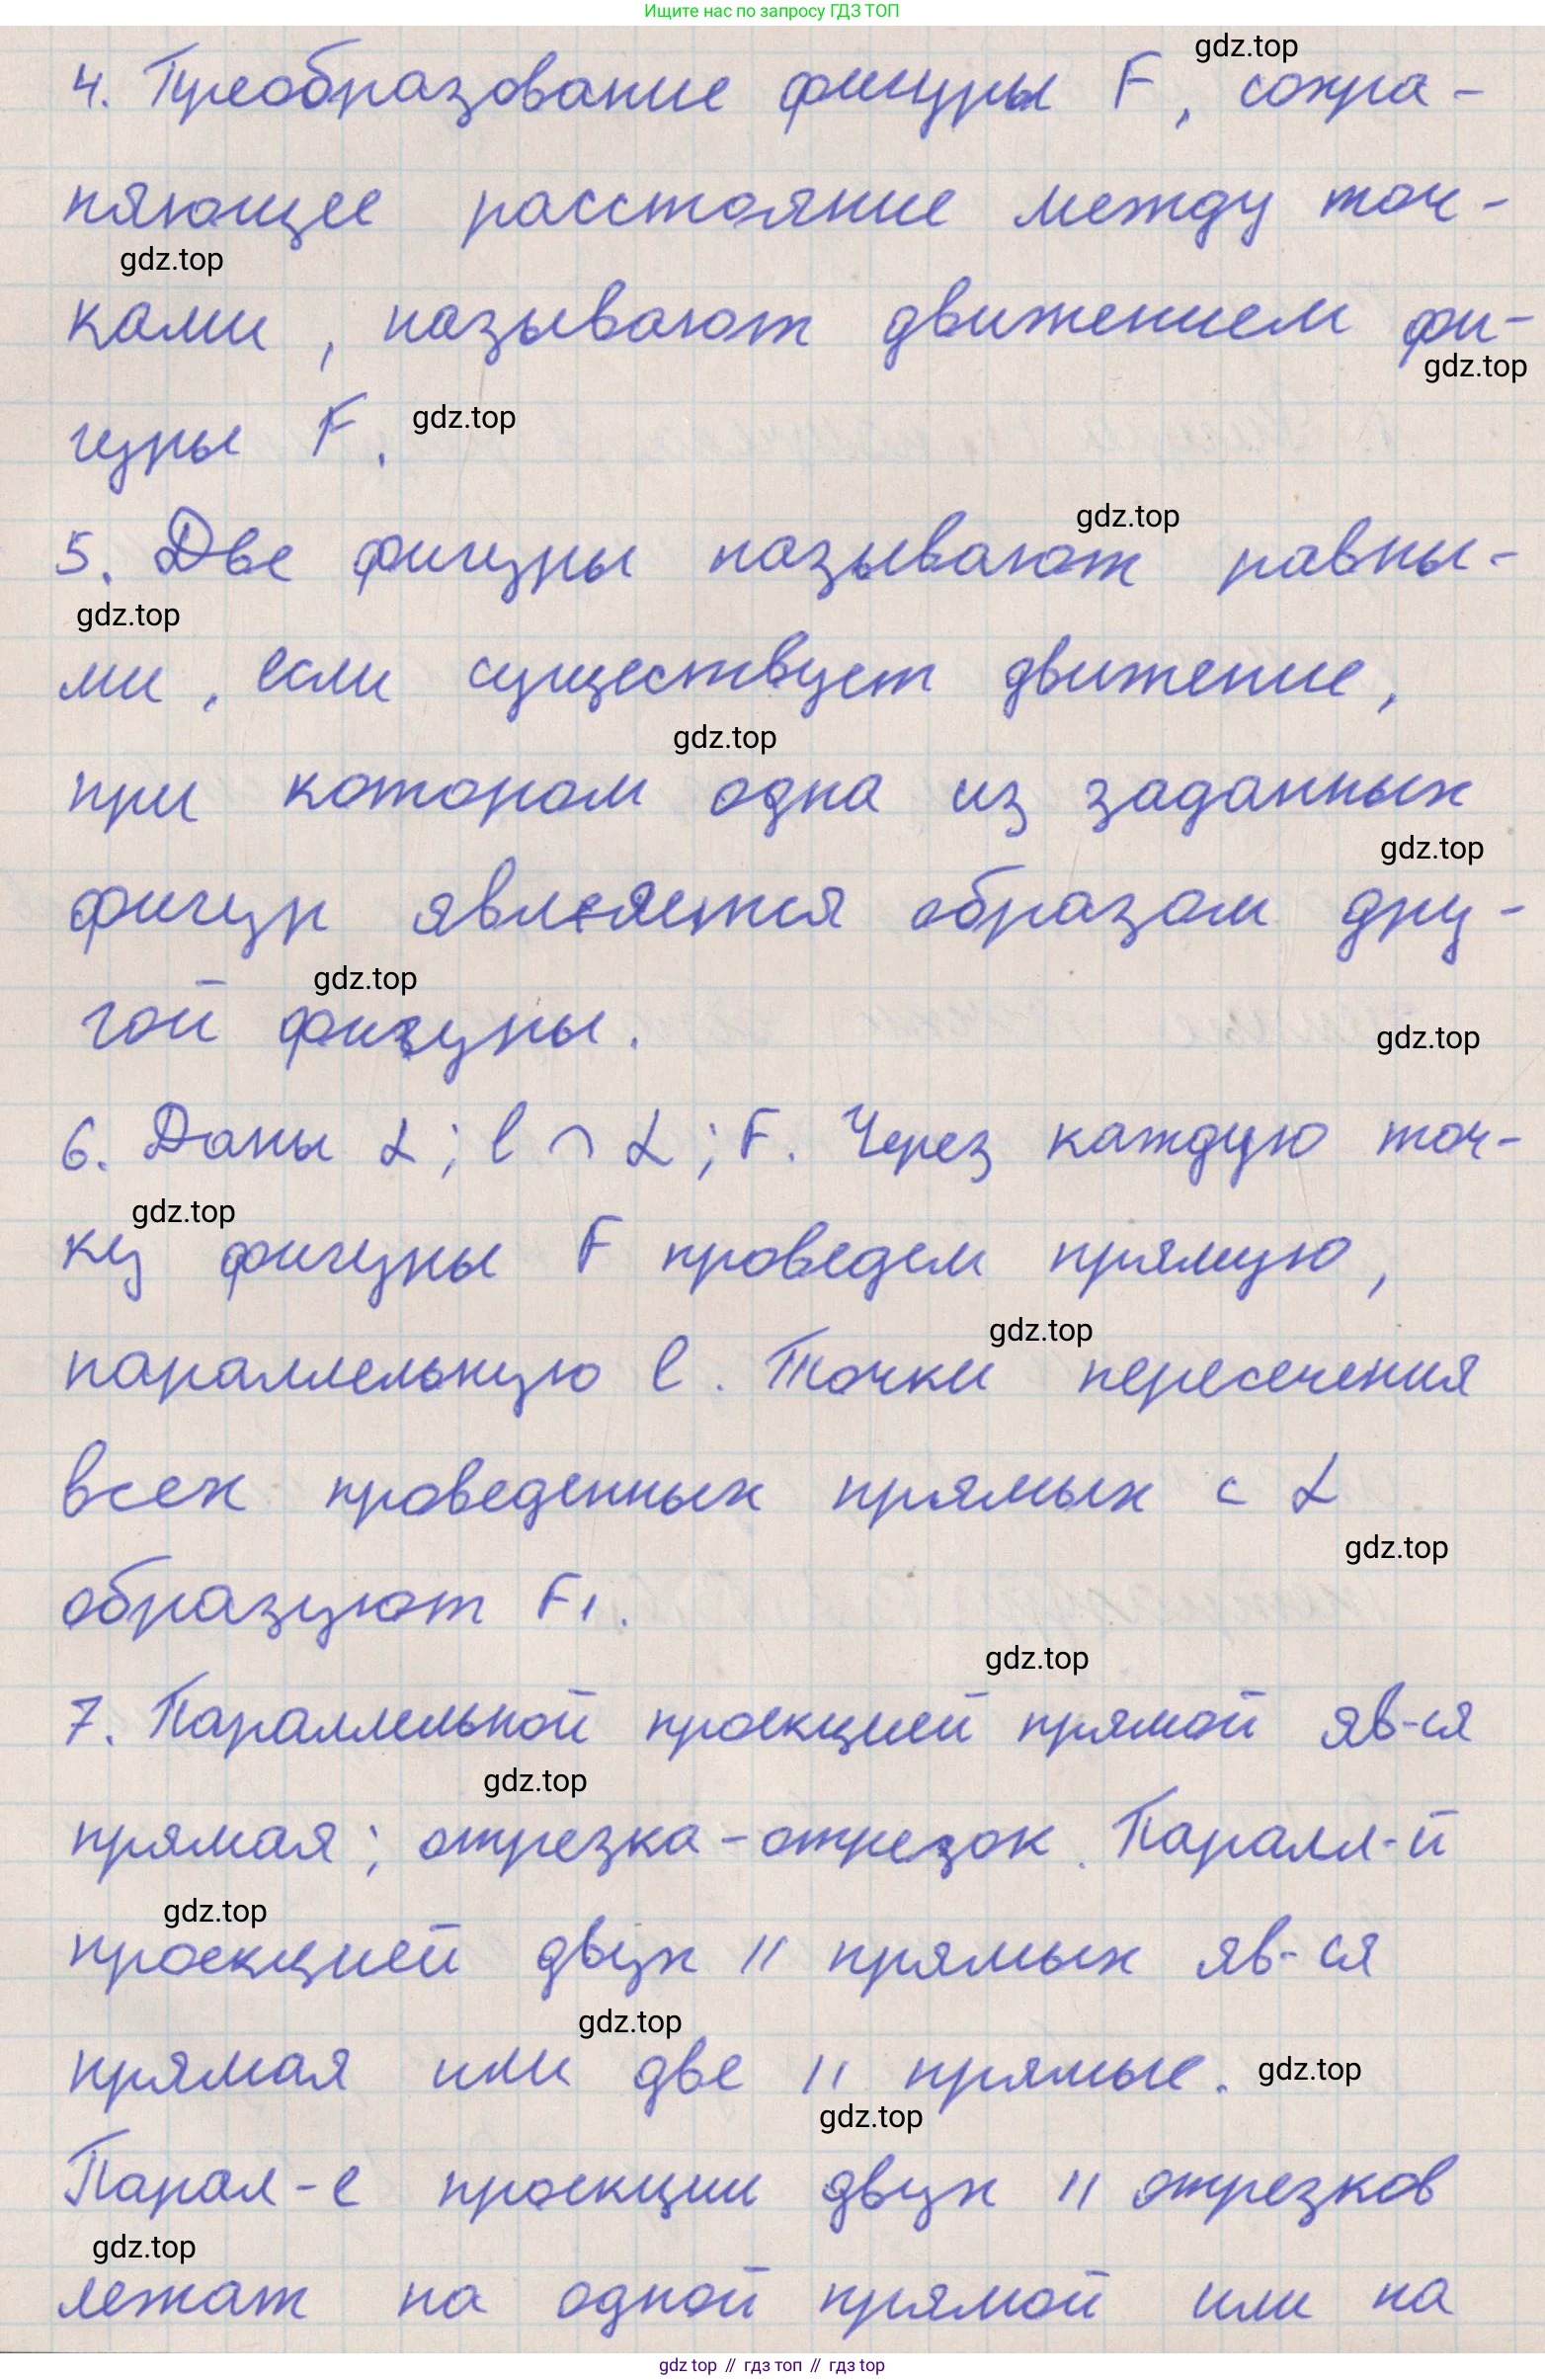 Ищите нас по запросу ГДЗ ТОП
gdz.top
4. Преобразование фигуры F, сохра-
няющее расстояние между точ-
gdz.top
ками, называют движением фи-
gdz.top
гуры F.
gdz.top
gdz.top
5. Две фигуры называют равны-
gdz.top
ми, если существует движение,
gdz.top
при котором одна из заданных
gdz.top
фигур является образом дру-
gdz.top
гой фигуры.
gdz.top
6. Даны α; l ∩ α; F. Через каждую точ-
gdz.top
ку фигуры F проведем прямую,
gdz.top
параллельную l. Точки пересечения
всех проведенных прямых с α
gdz.top
образуют F₁.
gdz.top
7. Параллельной проекцией прямой яв-ся
gdz.top
прямая; отрезка - отрезок. Паралл-й
gdz.top
проекцией двух || прямых яв-ся
gdz.top
прямая или две || прямые.
gdz.top
gdz.top
Парал-е проекции двух || отрезков
gdz.top
лежат на одной прямой или на
gdz top // гдз топ // гдз top